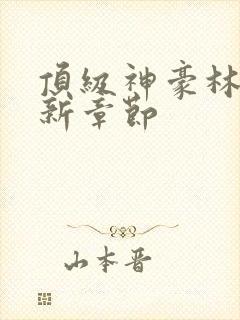 頂級神豪林
新章節
山本晋